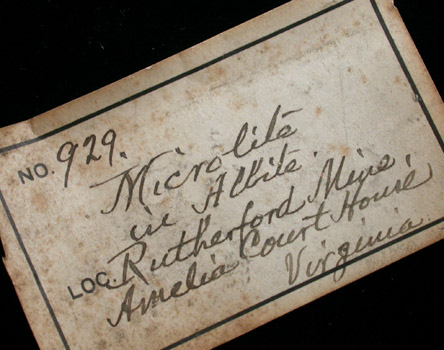 NO. 929.
Microlite
in Albite.
LOC. Rutherford Mine,
Amelia Court House
Virginia.